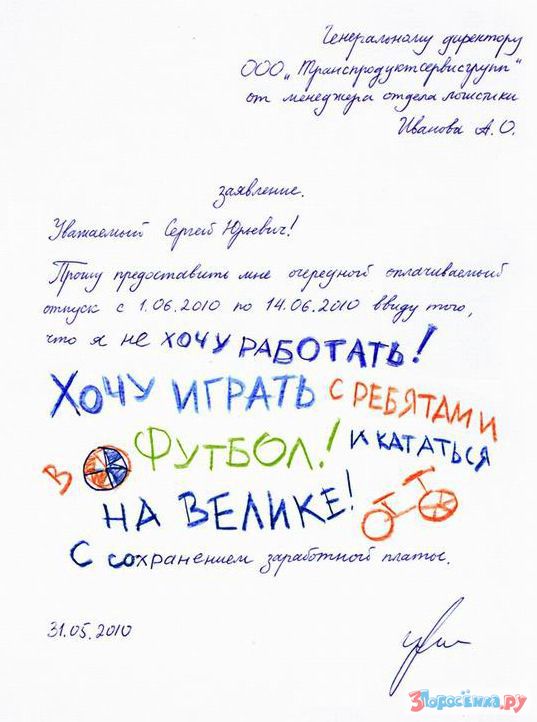 Генеральному директору
ООО „Транспродуктсервисгрупп“
от менеджера отдела логистики
Иванова А.О.
заявление.
Уважаемый Сергей Юрьевич!
Прошу предоставить мне очередной оплачиваемый
отпуск с 1.06.2010 по 14.06.2010 ввиду того,
что я не ХОЧУ РАБОТАТЬ!
ХОЧУ ИГРАТЬ С РЕБЯТАМИ
В ФУТБОЛ! И КАТАТЬСЯ
НА ВЕЛИКЕ!
С сохранением заработной платы.
31.05.2010
3Поросёнка.ру